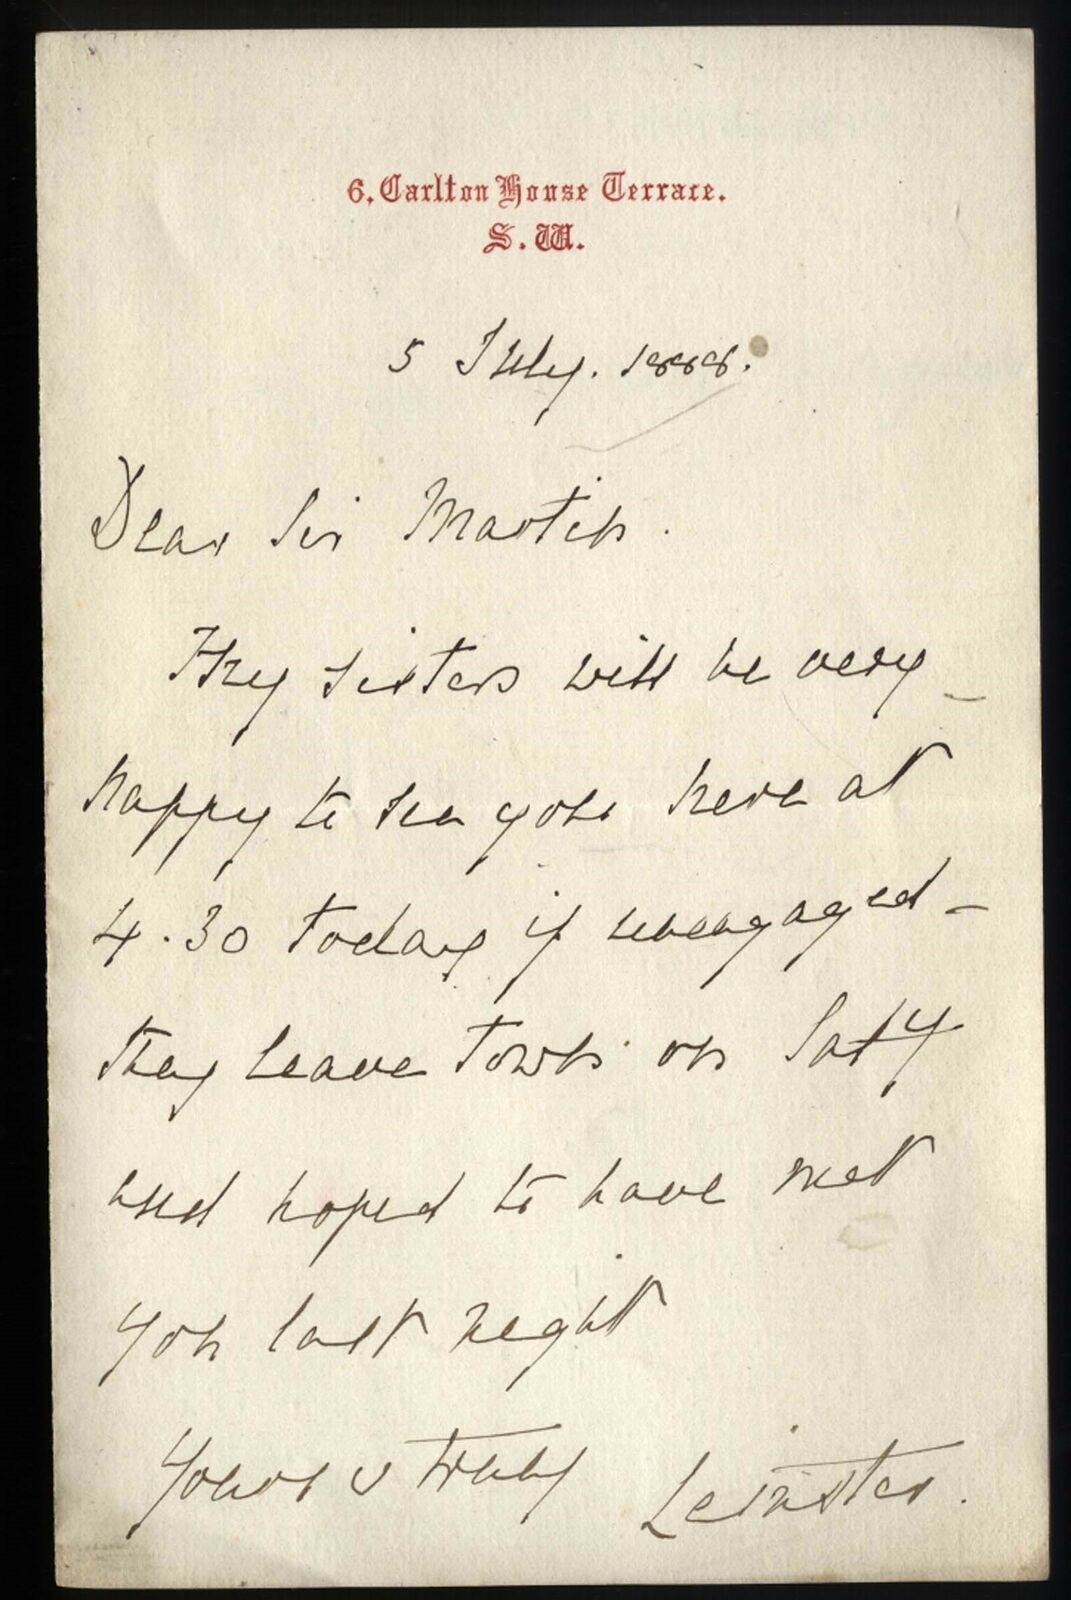 6, Carlton House Terrace.
S. W.
5 July. 1888.
Dear Sir Martin.
My sisters will be very _
happy to see you here at
4.30 today if unengaged _
they leave Town on SatY
and hoped to have met
you last night
Yours v truly Leinster.